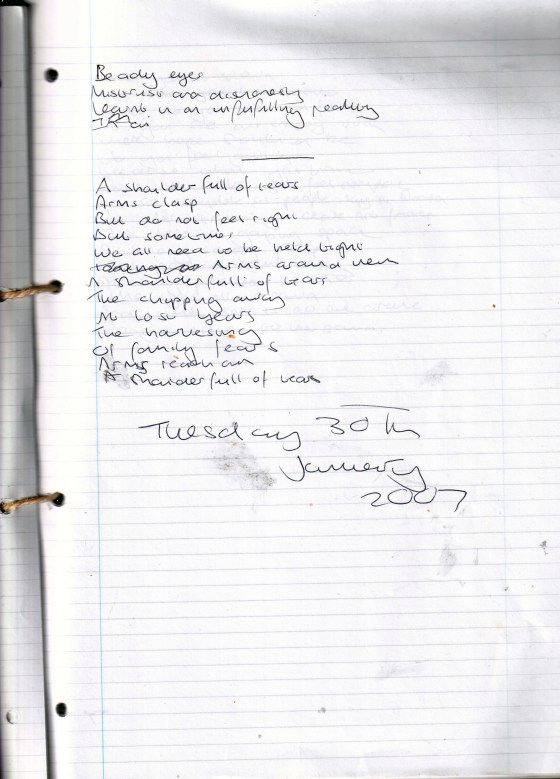 Beady eyes
Mistrust and dishonesty
Learnt in an unfulfilling reality
A shoulder full of tears
Arms clasp
But do not feel right
But sometimes
We all need to be held tight
Arms around them
A shoulder full of tears
The chipping away
At lost years
The harvesting
Of family fears
Arms reach out
A shoulder full of tears
Tuesday 30th
January
2007